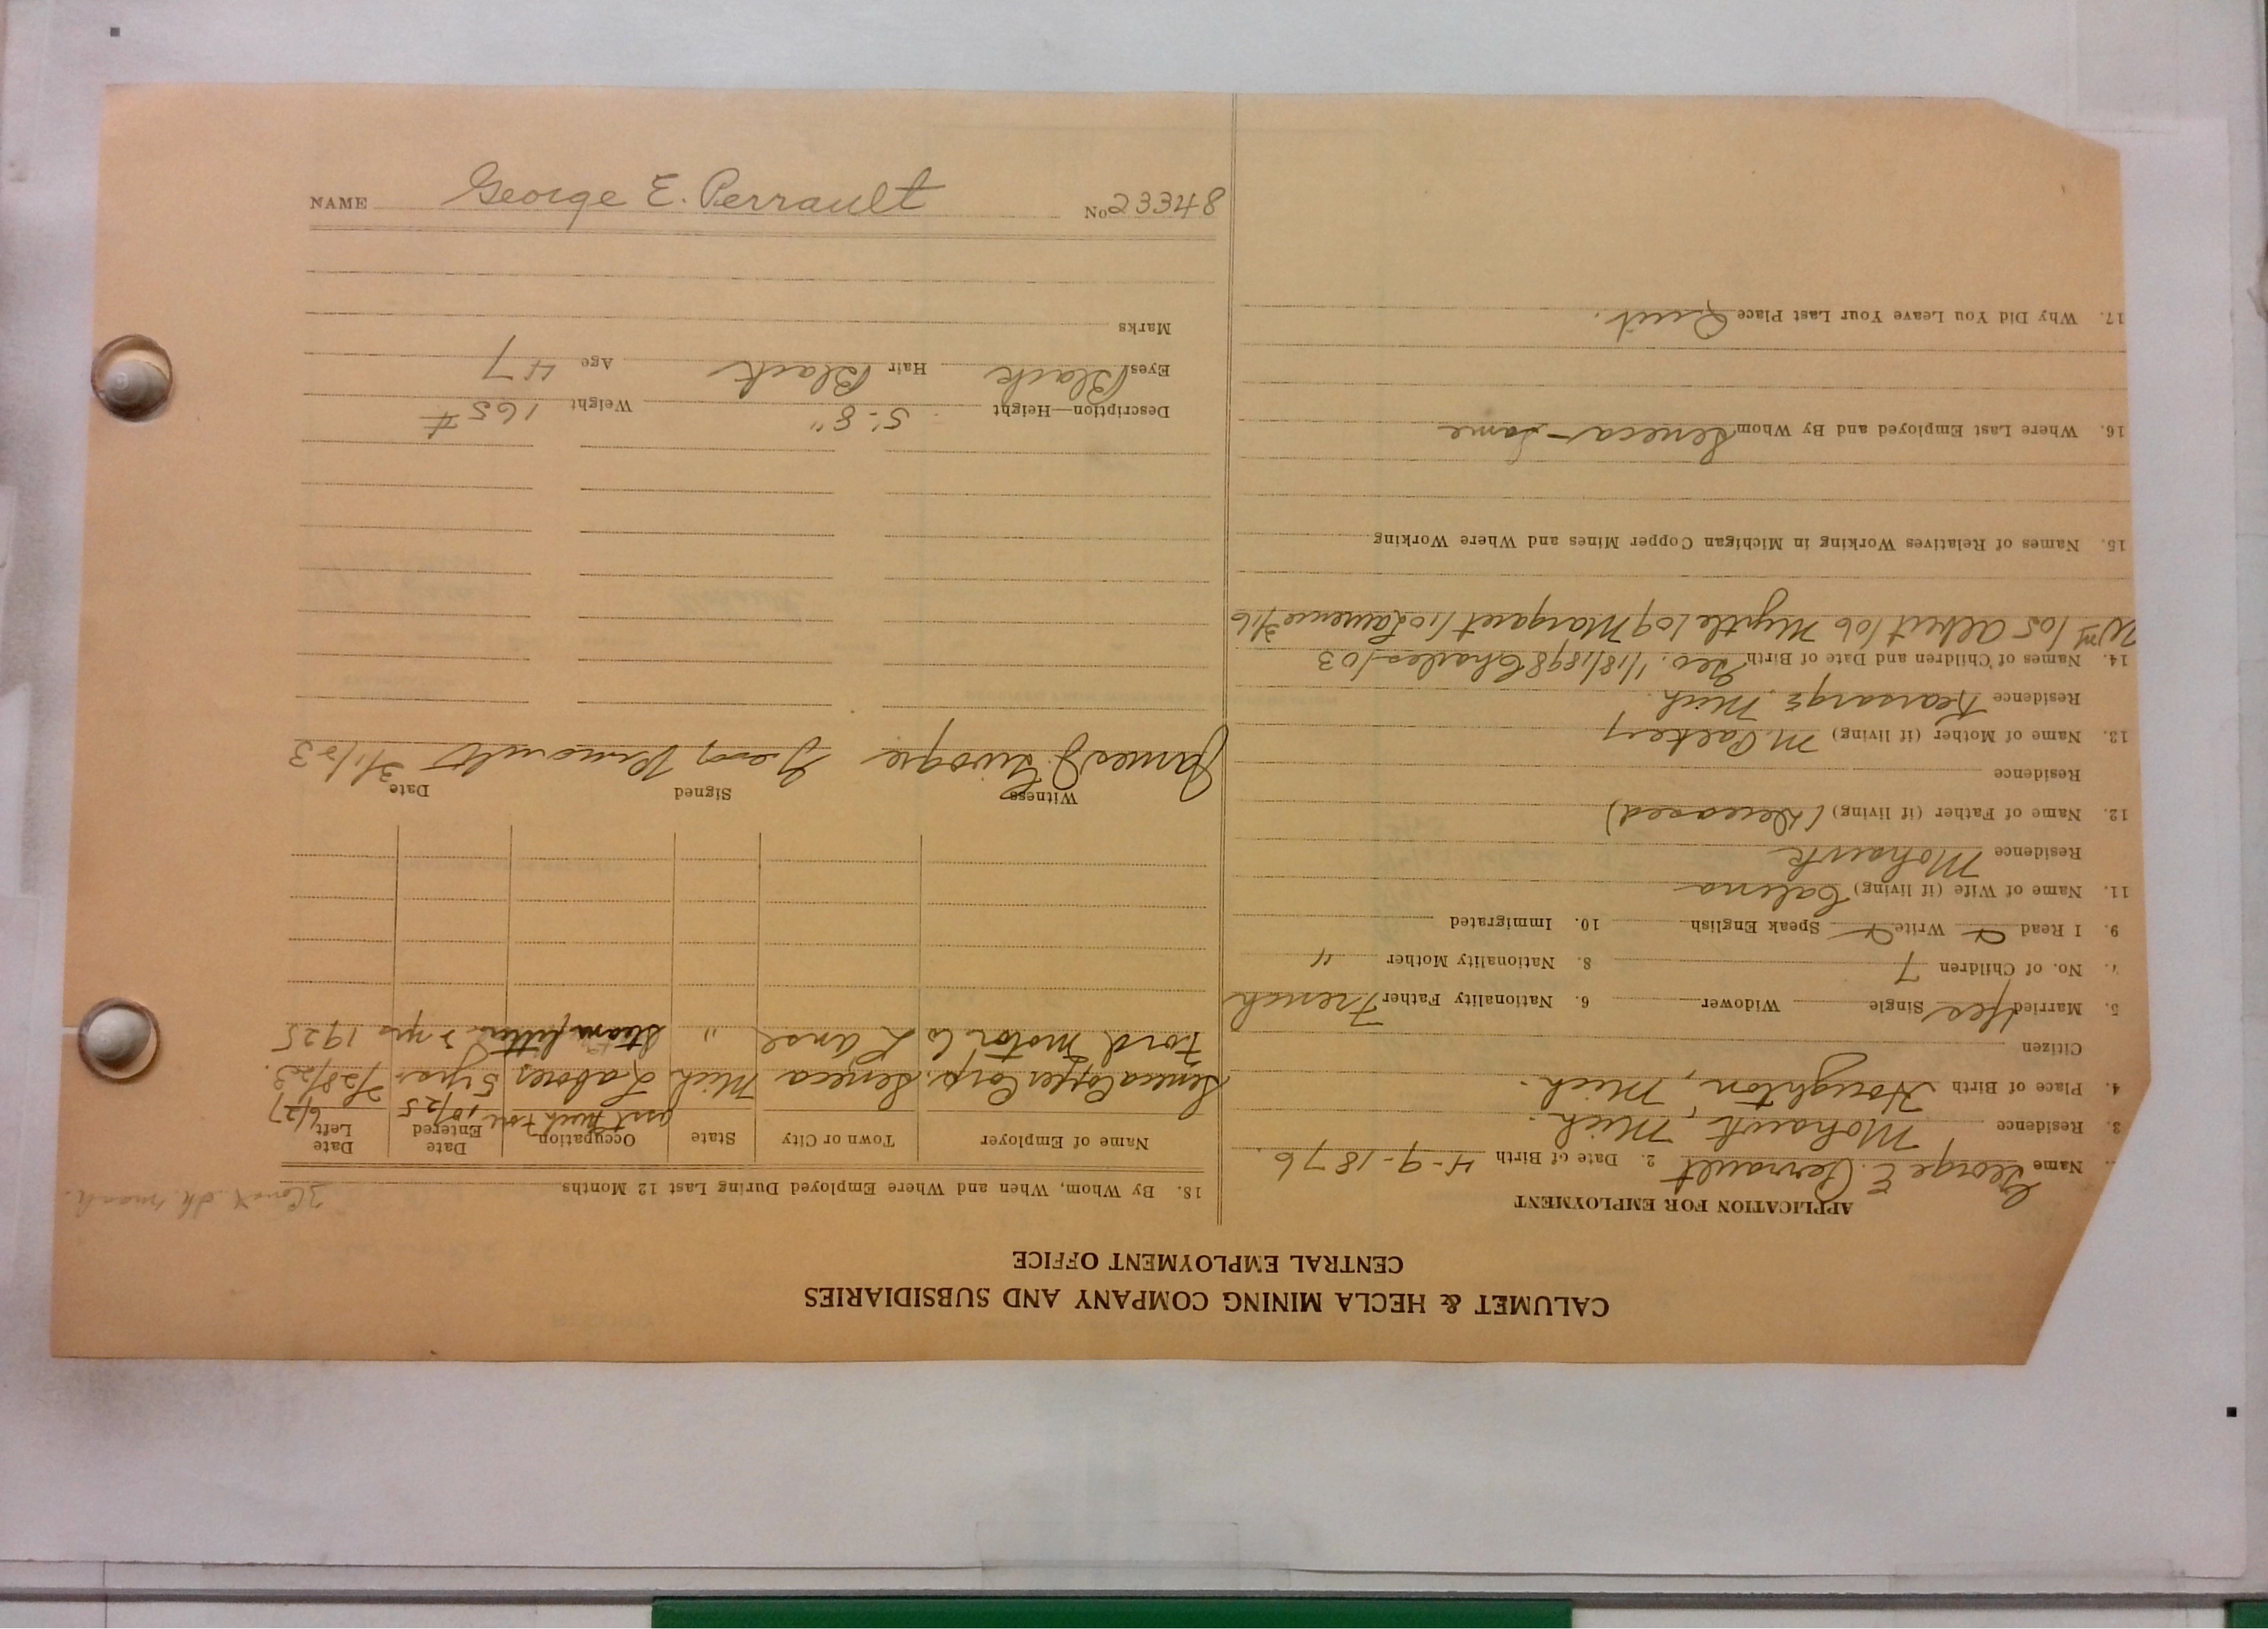 CALUMET & HECLA MINING COMPANY AND SUBSIDIARIES
CENTRAL EMPLOYMENT OFFICE
APPLICATION FOR EMPLOYMENT
Name George E. Perrault 2. Date of Birth 4-9-1876
3. Residence Mohawk, Mich.
4. Place of Birth Houghton, Mich.
Citizen
5. Married Yes Single Widower 6. Nationality Father French
7. No. of Children 7 8. Nationality Mother "
9. I Read Write Speak English 10. Immigrated
11. Name of Wife (if living) Calena
Residence Mohawk
12. Name of Father (if living) (Deceased)
Residence
13. Name of Mother (if living)
Residence Kearsarge Mich.
14. Names of Children and Date of Birth Geo. 1/18/1898 Charles/03
Wm/05 Albert/06 Myrtle/09 Margaret/10 Lawrence 3/16
15. Names of Relatives Working in Michigan Copper Mines and Where Working
16. Where Last Employed and By Whom Seneca - Same
17. Why Did You Leave Your Last Place Quit.
18. By Whom, When and Where Employed During Last 12 Months
Name of Employer Town or City State Occupation Date Entered Date Left
10/25 6/27
Seneca Copper Corp. Seneca Mich Laborer 5 yrs 2/28/23.
Ford Motor Co L'anse " Steam fitter 2 yrs 1925
Witness Signed Date
James J. Geo Perrault 3/1/23
Description—Height 5'-8" Weight 165#
Eyes Black Hair Black Age 47
Marks
NAME George E. Perrault No 23348